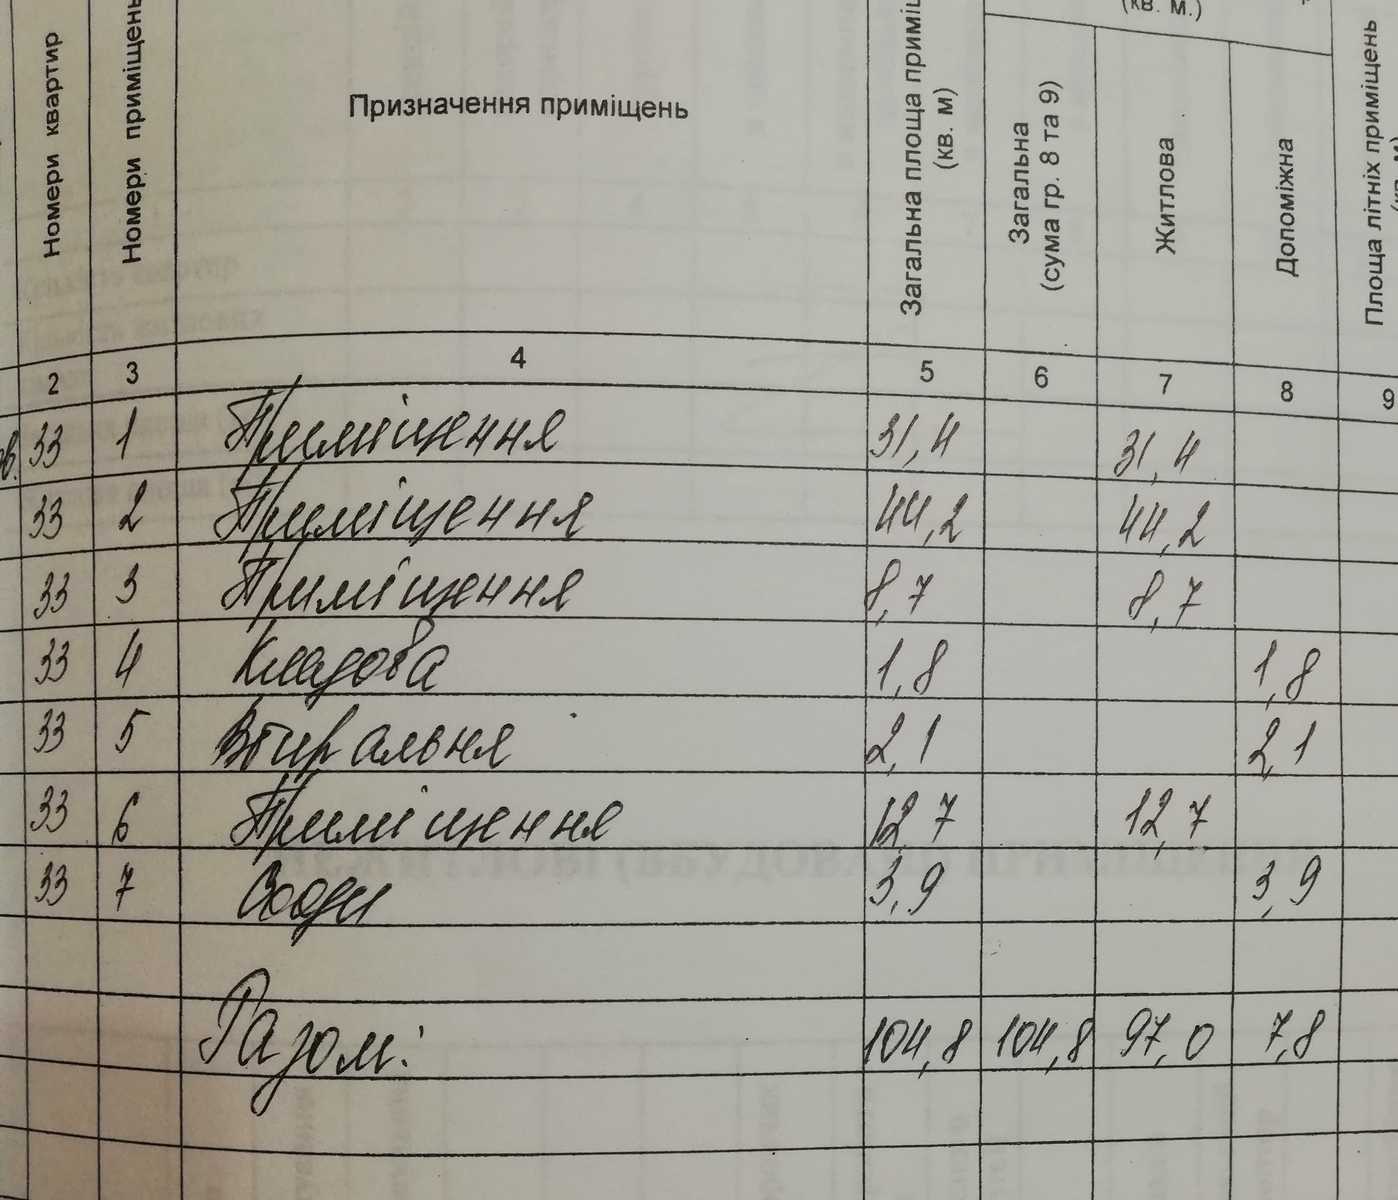 Номери квартир
Номери приміщень
Призначення приміщень
Загальна площа приміщ
(кв. м)
(кв. м.)
Загальна
(сума гр. 8 та 9)
Житлова
Допоміжна
Площа літніх приміщень
2 3 4 5 6 7 8 9
ов. 33 1 Приміщення 31,4 31,4
33 2 Приміщення 44,2 44,2
33 3 Приміщення 8,7 8,7
33 4 Кладова 1,8 1,8
33 5 Вбиральня 2,1 2,1
33 6 Приміщення 12,7 12,7
33 7 Сходи 3,9 3,9
Разом: 104,8 104,8 97,0 7,8